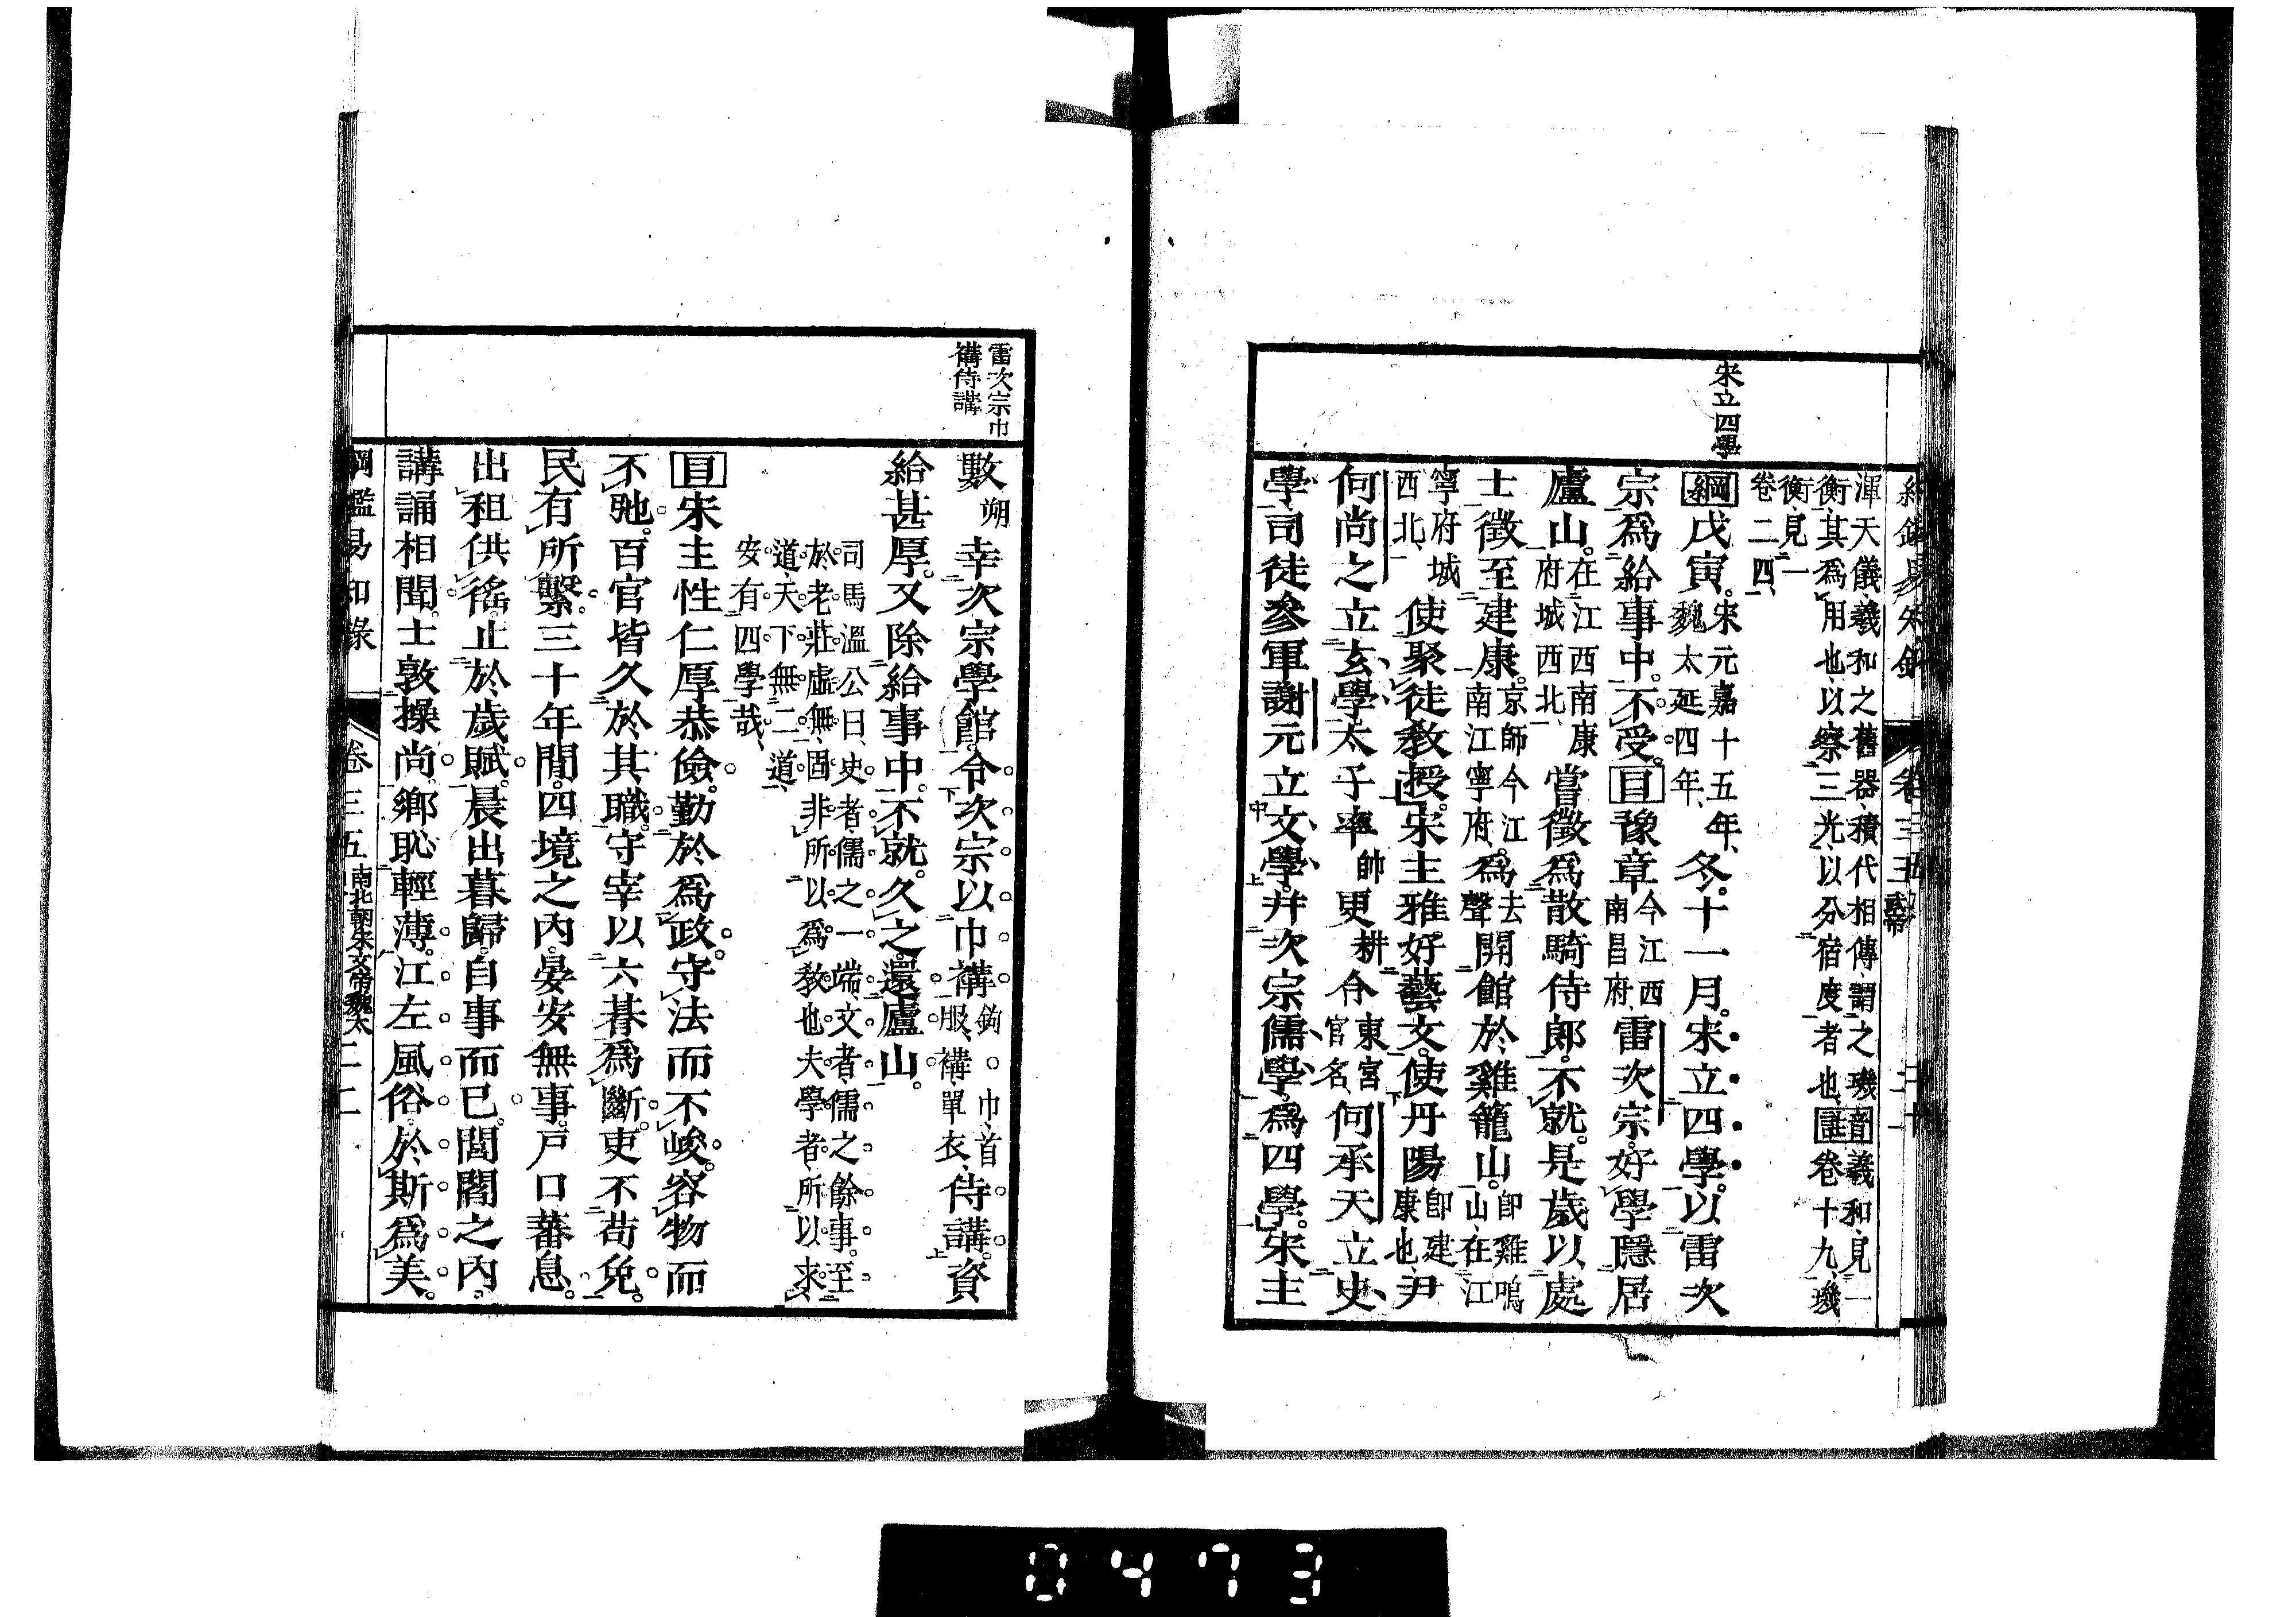 宋立四學
渾天儀羲和之舊器、積代相傳、謂之璣
衡、其爲用也、以察三光、以分宿度者也、註音羲和、見一
衡、見一
卷十九、璣
卷二四、
綱戊寅。宋元嘉十五年、魏太延四年、冬。十一月。宋立四學。以雷次
宗爲給事中。不受。目豫章今江西南昌府、雷次宗。好學隱居
廬山。在江西南康府城西北、嘗徵爲散騎侍郎。不就。是歲以處
士徵至建康。京師今江南江寧府、爲去聲開館於雞籠山。卽雞鳴山、在江
寧府城西北、使聚徒敎授。宋主雅好藝文。使丹陽卽建康也、尹
何尚之立玄學、太子率帥更耕令東宮官名、何承天立史
學、司徒參軍謝元立文學。幷次宗儒學。爲四學。宋主
雷次宗巾
褠侍講
數朔幸次宗學館。令次宗以巾褠鉤○巾、首服、褠、單衣、侍講。資
給甚厚。又除給事中。不就。久之。還廬山。
司馬溫公曰、史者、儒之一端、文者、儒之餘事。至
於老莊虛無、固非所以爲敎也、夫學者、所以求
道、天下無二道、
安有四學哉、
目宋主性仁厚恭儉。勤於爲政。守法而不峻。容物而
不弛。百官皆久於其職。守宰以六朞爲斷。吏不苟免。
民有所繫。三十年閒。四境之內。晏安無事。戶口蕃息。
出租供徭。止於歲賦。晨出暮歸。自事而已。閭閻之內。
講誦相聞。士敦操尚。鄉恥輕薄。江左風俗。於斯爲美。
綱鑑易知錄
卷三五
南北朝宋文帝魏太
二一
0473